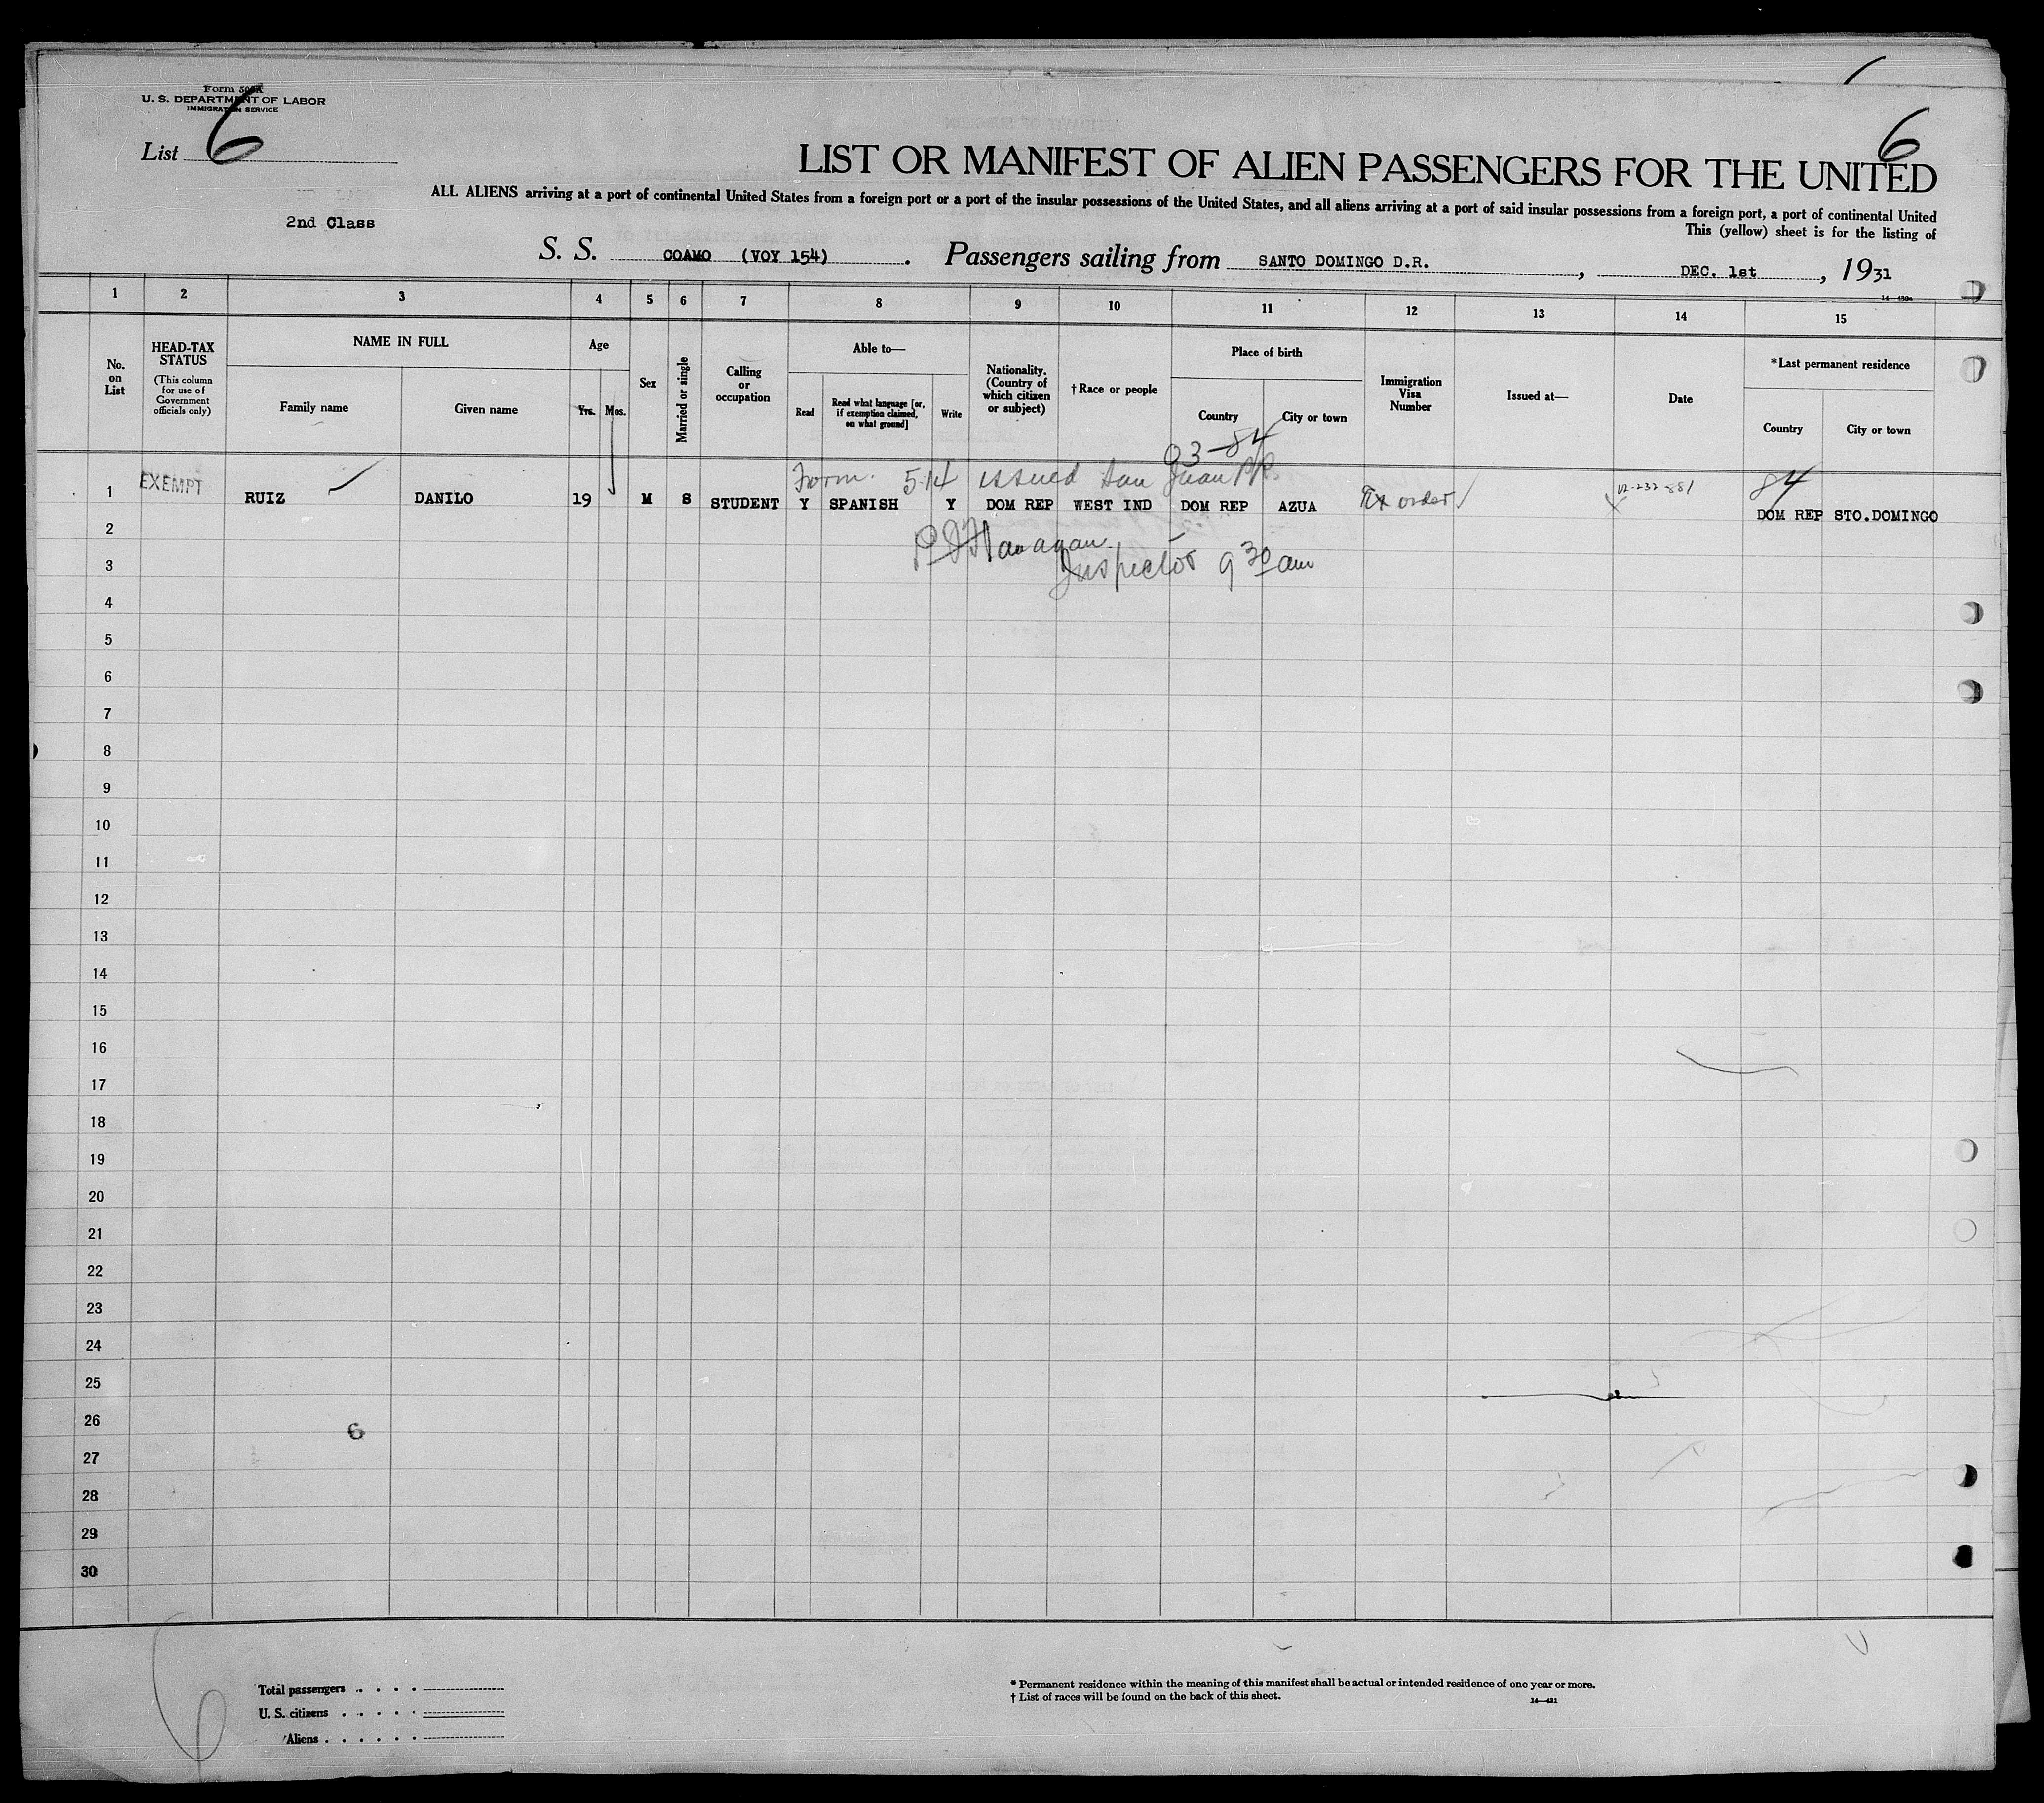 Form 500A
U. S. DEPARTMENT OF LABOR
IMMIGRATION SERVICE
List 6
6
LIST OR MANIFEST OF ALIEN PASSENGERS FOR THE UNITED
ALL ALIENS arriving at a port of continental United States from a foreign port or a port of the insular possessions of the United States, and all aliens arriving at a port of said insular possessions from a foreign port, a port of continental United
This (yellow) sheet is for the listing of
2nd Class
S. S. COAMO (VOY 154). Passengers sailing from SANTO DOMINGO D.R., DEC. 1st, 1931
1 2 3 4 5 6 7 8 9 10 11 12 13 14 15
No. on List
HEAD-TAX STATUS
(This column for use of Government officials only)
NAME IN FULL
Family name
Given name
Age
Yrs. Mos.
Sex
Married or single
Calling or occupation
Able to—
Read
Read what language [or, if exemption claimed, on what ground]
Write
Nationality. (Country of which citizen or subject)
†Race or people
Place of birth
Country
City or town
Immigration Visa Number
Issued at—
Date
*Last permanent residence
Country
City or town
93-84
Form 514 issued San Juan P.R.
84
1 EXEMPT RUIZ DANILO 19 M S STUDENT Y SPANISH Y DOM REP WEST IND DOM REP AZUA Ex order DOM REP STO.DOMINGO
2
Flanagan
Inspector 9 30 am
3
4
5
6
7
8
9
10
11
12
13
14
15
16
17
18
19
20
21
22
23
24
25
26
6
27
28
29
30
Total passengers
U. S. citizens
Aliens
* Permanent residence within the meaning of this manifest shall be actual or intended residence of one year or more.
† List of races will be found on the back of this sheet.
14—431